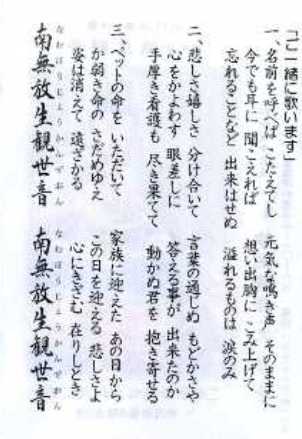 「ご一緒に歌います」
一、名前を呼べば こたえてし 元気な鳴き声 そのままに
今でも耳に 聞こえれば 想い出胸に こみ上げて
忘れることなど 出来はせぬ 溢れるものは 涙のみ
二、悲しさ嬉しさ 分け合いて 言葉の通じぬ もどかさや
心をかよわす 眼差しに 答える事が 出来たのか
手厚き看護も 尽き果てて 動かぬ君を 抱き寄せる
三、ペットの命を いただいて 家族に迎えた あの日から
か弱き命の さだめゆえ この日を迎える 悲しさよ
姿は消えて 遠ざかる 心にきざむ 在りしとき
南無放生観世音 南無放生観世音